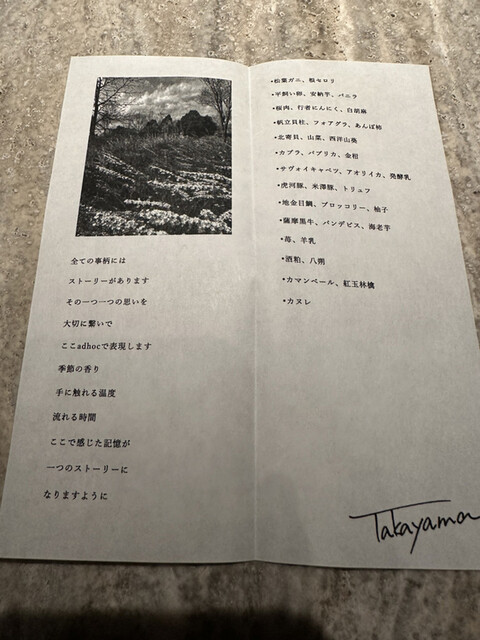 全ての事柄には
ストーリーがあります
その一つ一つの思いを
大切に繋いで
ここadhocで表現します
季節の香り
手に触れる温度
流れる時間
ここで感じた記憶が
一つのストーリーに
なりますように
•松葉ガニ、根セロリ
•平飼い卵、安納芋、バニラ
•桜肉、行者にんにく、白胡麻
•帆立貝柱、フォアグラ、あんぽ柿
•北寄貝、山菜、西洋山葵
•カブラ、パプリカ、金柑
•サヴォイキャベツ、アオリイカ、発酵乳
•虎河豚、米澤豚、トリュフ
•地金目鯛、ブロッコリー、柚子
•薩摩黒牛、パンデピス、海老芋
•苺、羊乳
•酒粕、八朔
•カマンベール、紅玉林檎
•カヌレ
Takayama